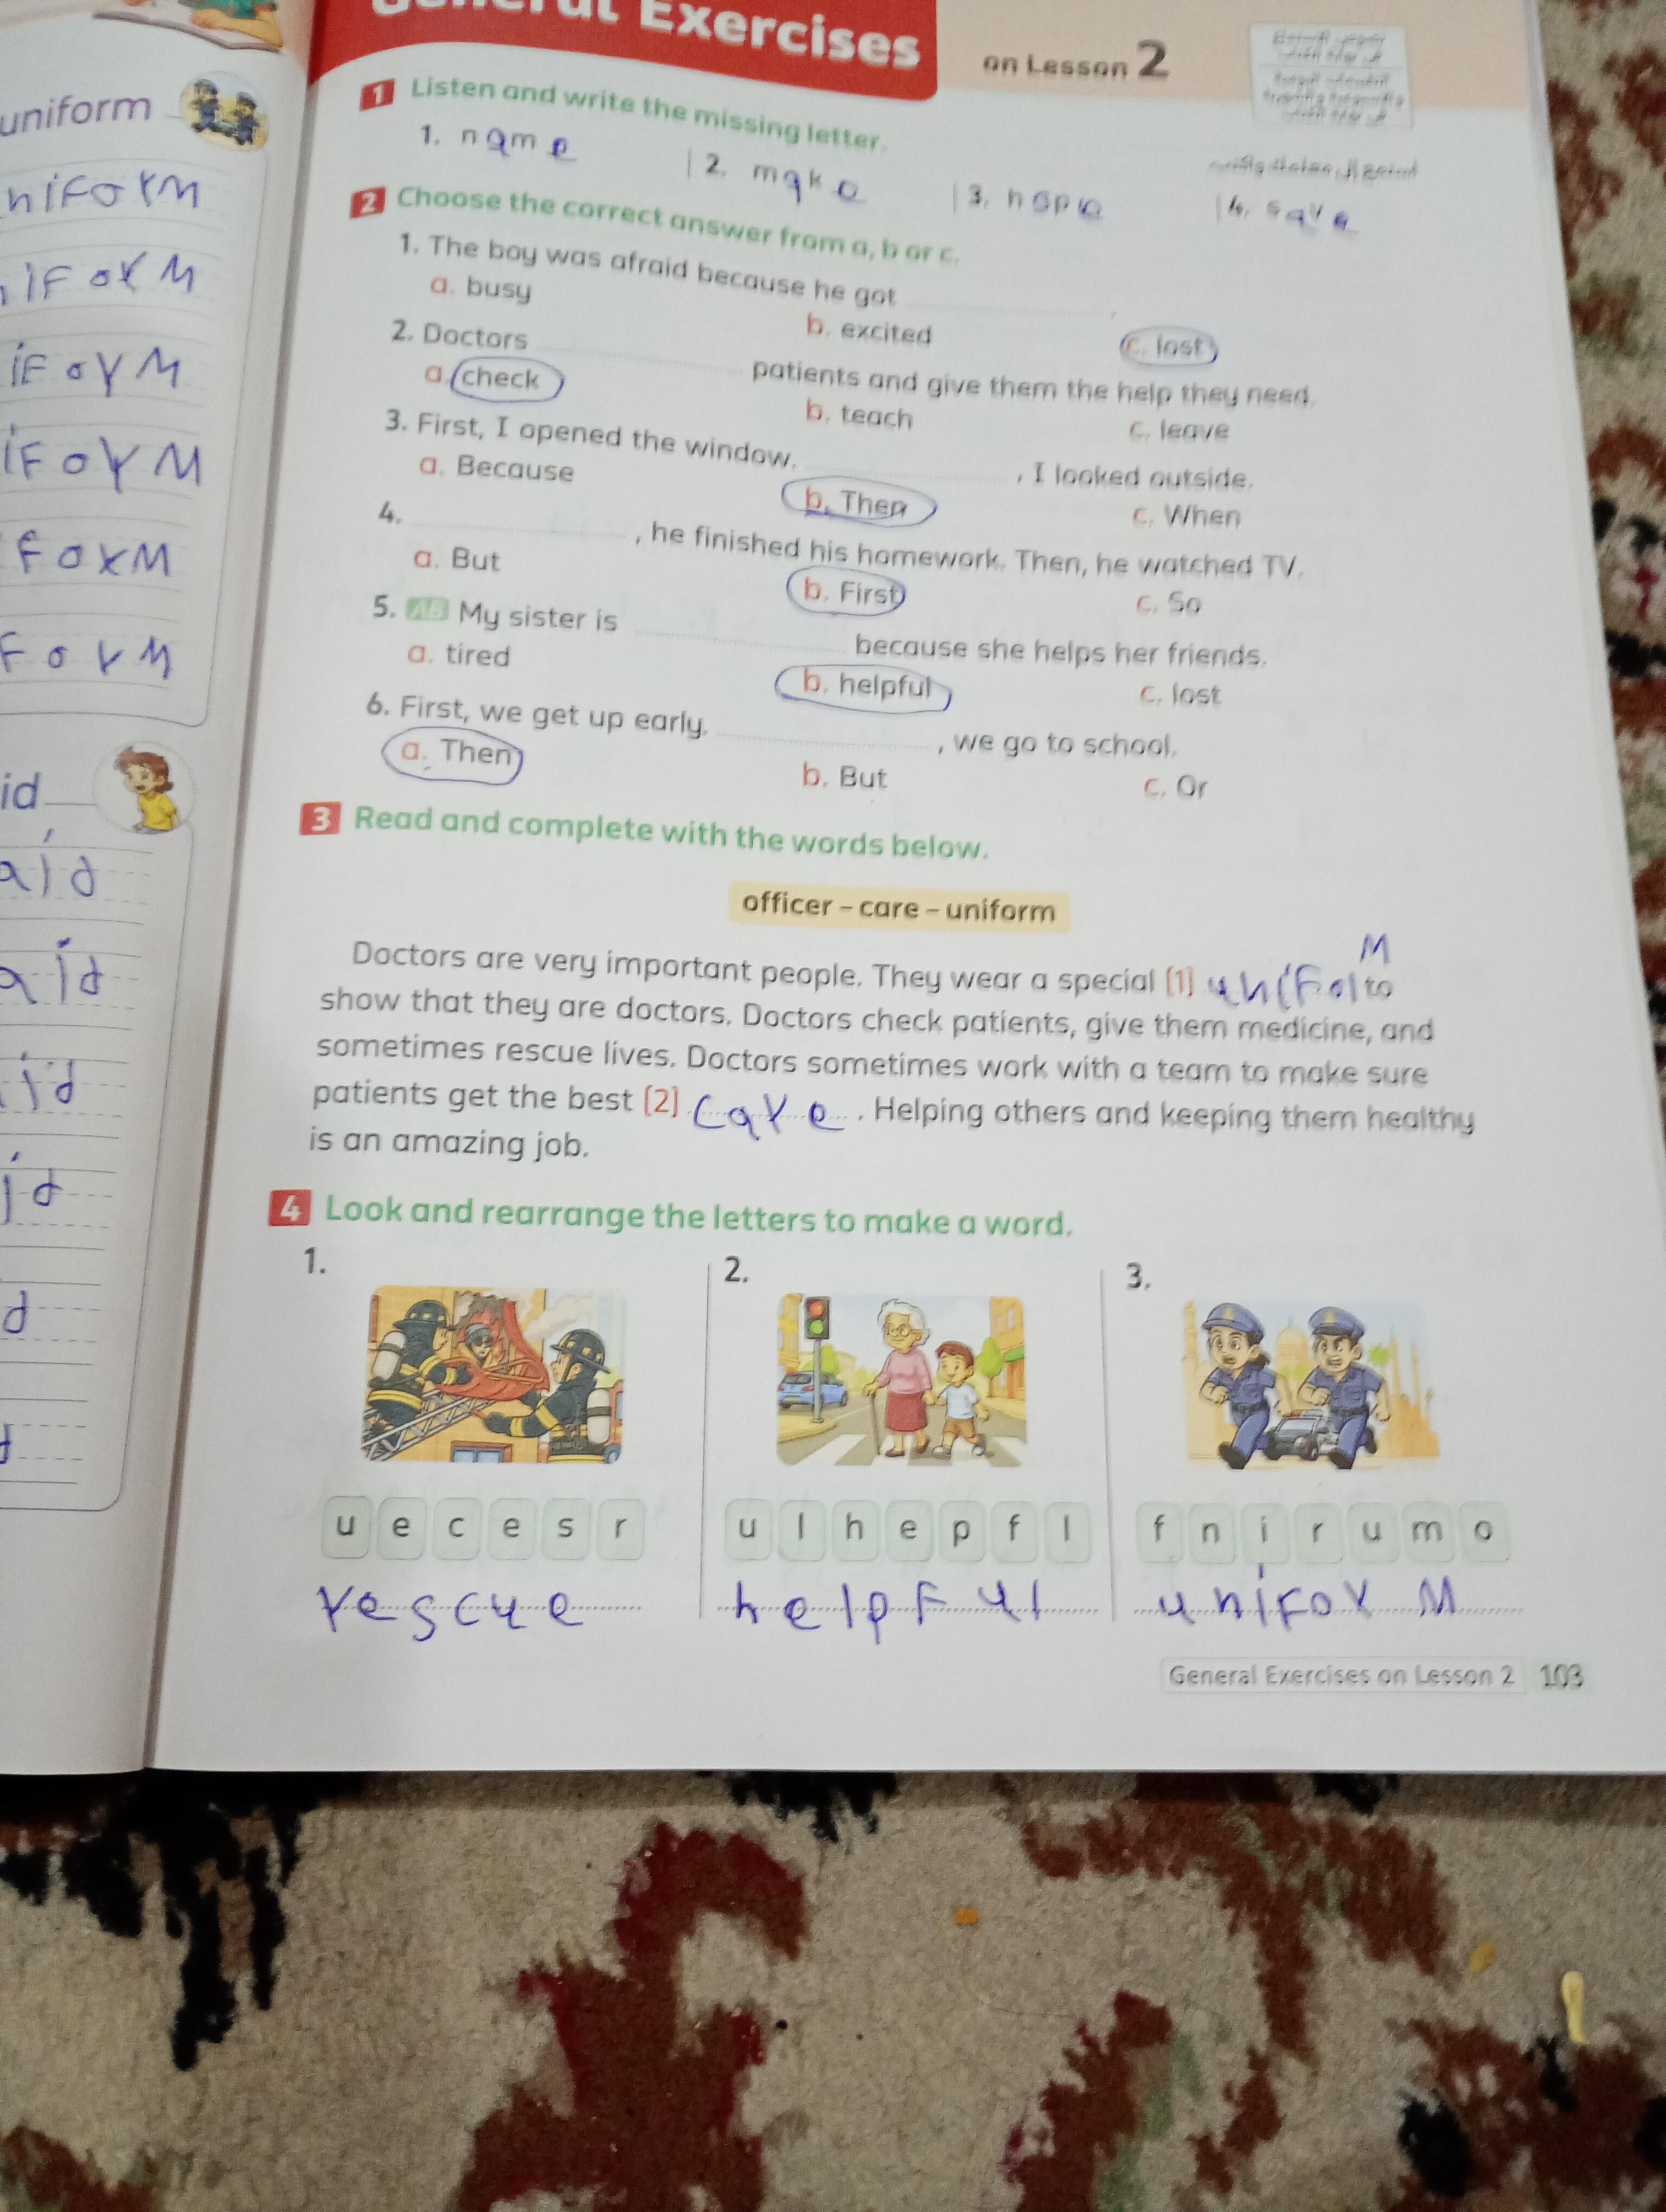 General Exercises on Lesson 2
1 Listen and write the missing letter.
1. name | 2. make | 3. hope | 4. save
2 Choose the correct answer from a, b or c.
1. The boy was afraid because he got .
a. busy b. excited c. lost
2. Doctors patients and give them the help they need.
a. check b. teach c. leave
3. First, I opened the window. , I looked outside.
a. Because b. Then c. When
4. , he finished his homework. Then, he watched TV.
a. But b. First c. So
5. AB My sister is because she helps her friends.
a. tired b. helpful c. lost
6. First, we get up early. , we go to school.
a. Then b. But c. Or
3 Read and complete with the words below.
officer – care – uniform
Doctors are very important people. They wear a special (1) uniFoM to
show that they are doctors. Doctors check patients, give them medicine, and
sometimes rescue lives. Doctors sometimes work with a team to make sure
patients get the best (2) care . Helping others and keeping them healthy
is an amazing job.
4 Look and rearrange the letters to make a word.
1. 2. 3.
u e c e s r u l h e p f l f n i r u m o
rescue helpFul uniForM
General Exercises on Lesson 2 103
uniform
niForM
iForM
iForM
iForM
ForM
ForM
id
aid
aid
id
id
d